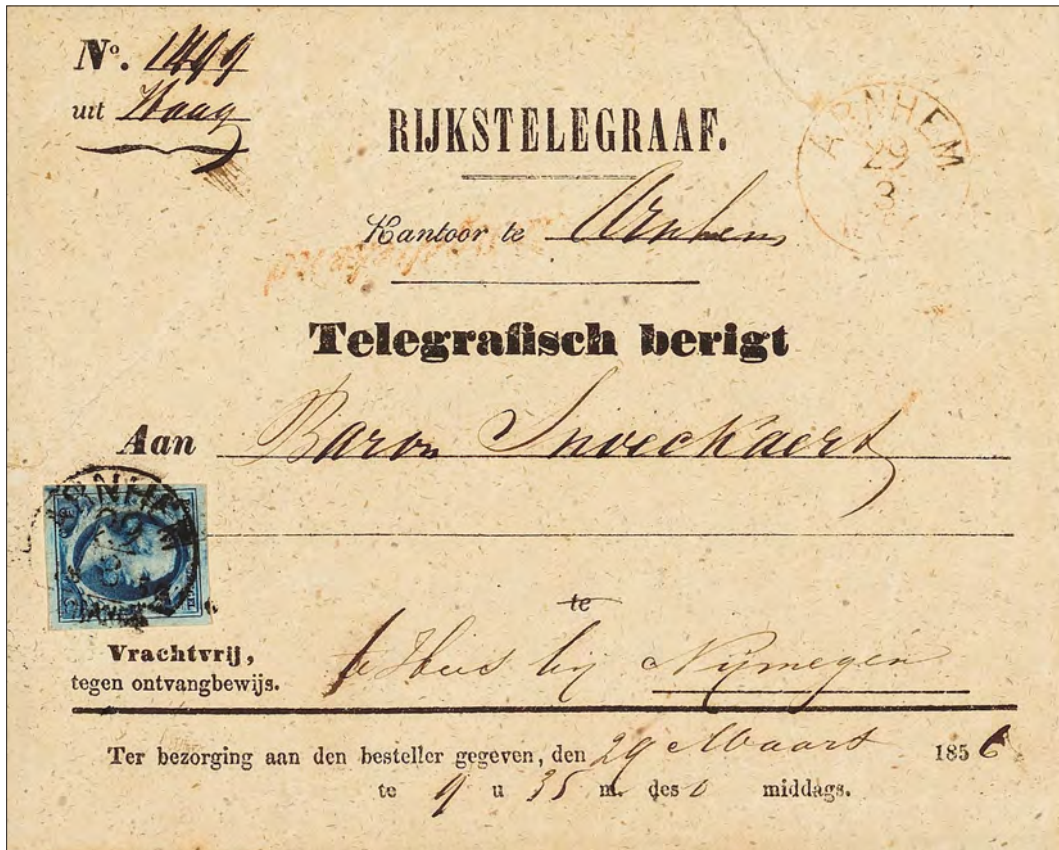 No. 1499
uit Haag
RIJKSTELEGRAAF.
ARNHEM
29
3
Kantoor te Arnhem
Telegrafisch berigt
Aan Baron Snoeckaert
ARNHEM
29
3
te
Hees bij Nijmegen
Vrachtvrij,
tegen ontvangbewijs.
Ter bezorging aan den besteller gegeven, den 29 Maart 1856
te 9 u 35 m. des middags.